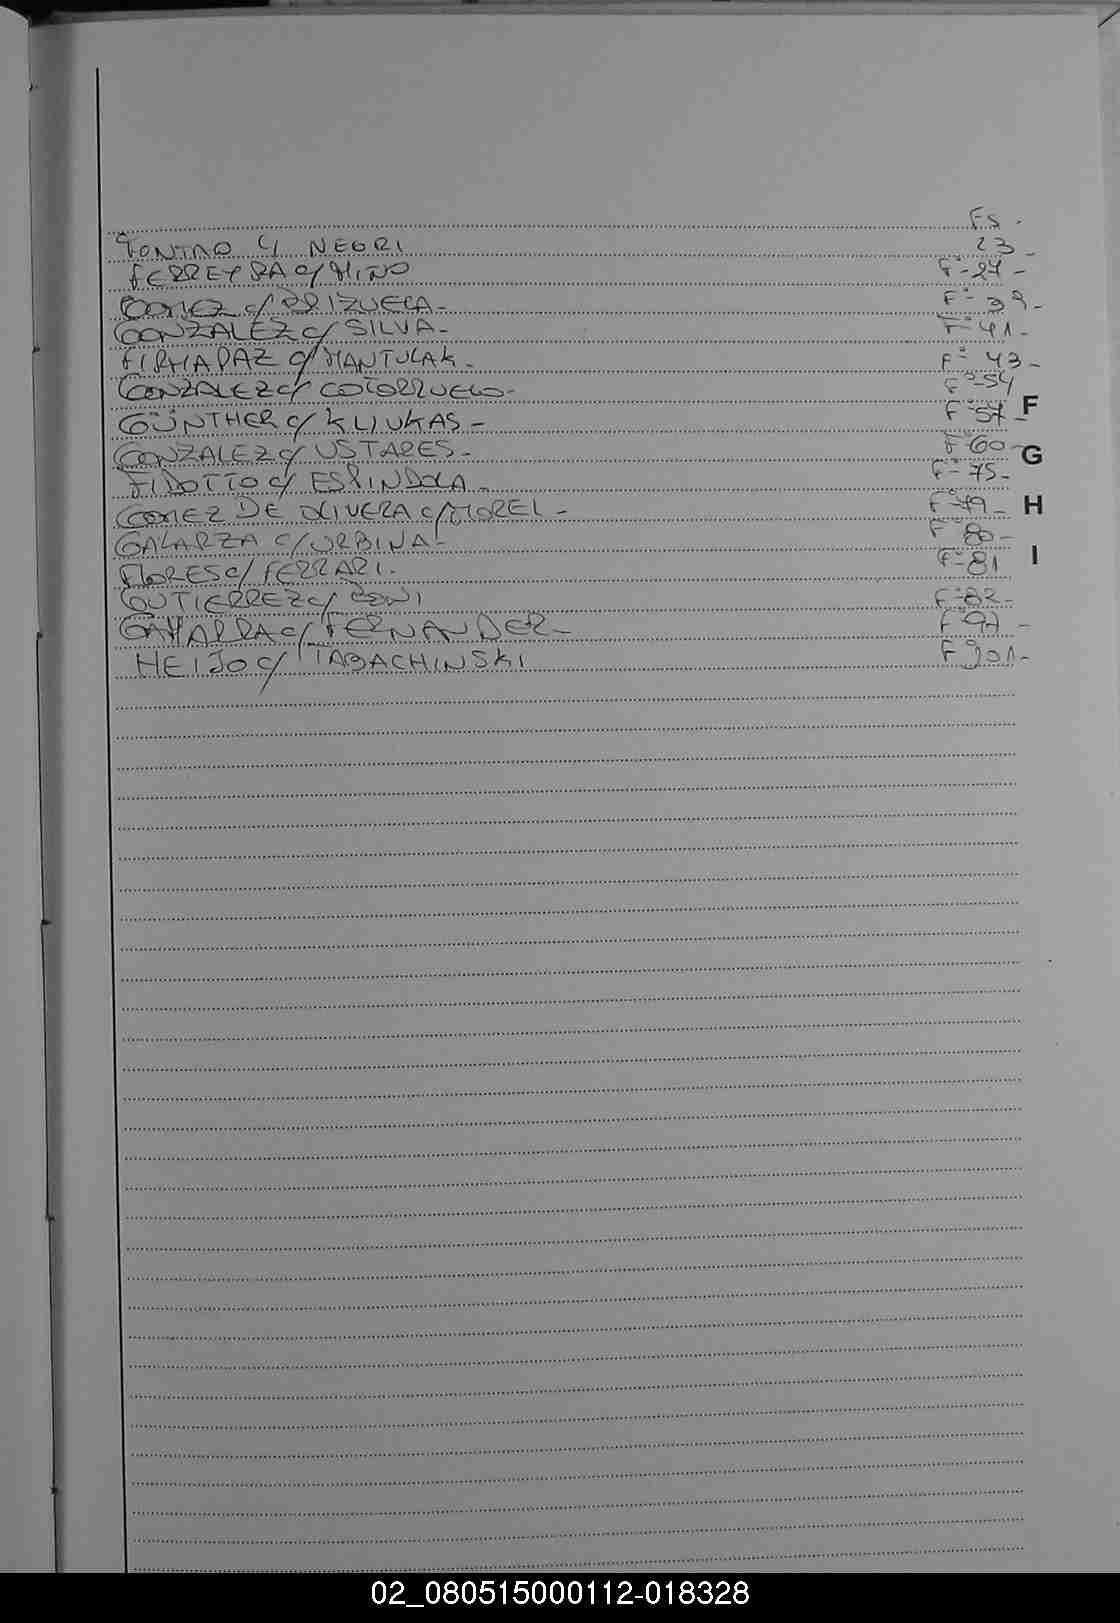 Fs.
FONTAO c/ NEGRI 23 -
FERREYRA c/ MIÑO Fº- 27 -
GOMEZ c/ BRIZUELA - Fº- 39 -
GONZALEZ c/ SILVA - Fº 41 -
FIRMAPAZ c/ MANTULAK - Fº 43 -
GONZALEZ c/ COTORRUELO - Fº 54
GÜNTHER c/ KLIUKAS - Fº 57 - F
GONZALEZ c/ USTARES - Fº 60 - G
FIDOTTO c/ ESPINDOLA - Fº 75 -
GOMEZ DE OLIVERA c/ MOREL - Fº 79 - H
GALARZA c/ URBINA - Fº 80 -
FLORES c/ FERRARI. Fº 81 I
GUTIERREZ c/ BONI Fº 82 -
GAMARRA c/ FERNANDER - Fº 97 -
HEIJO c/ TABACHINSKI Fº 101 -
02_080515000112-018328